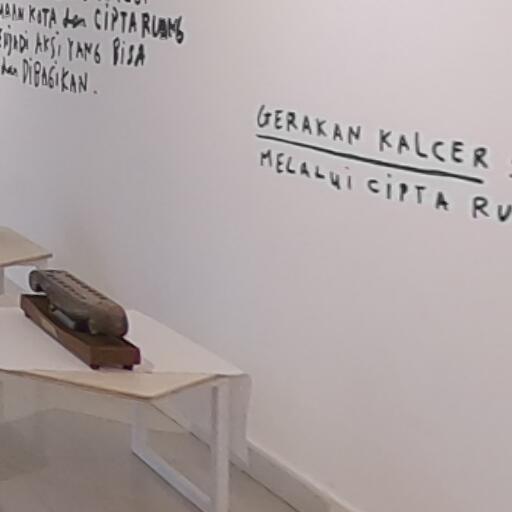 KOTA dan CIPTA RUANG
AKSI YANG BISA
dan DIBAGIKAN.
GERAKAN KALCER
MELALUI CIPTA